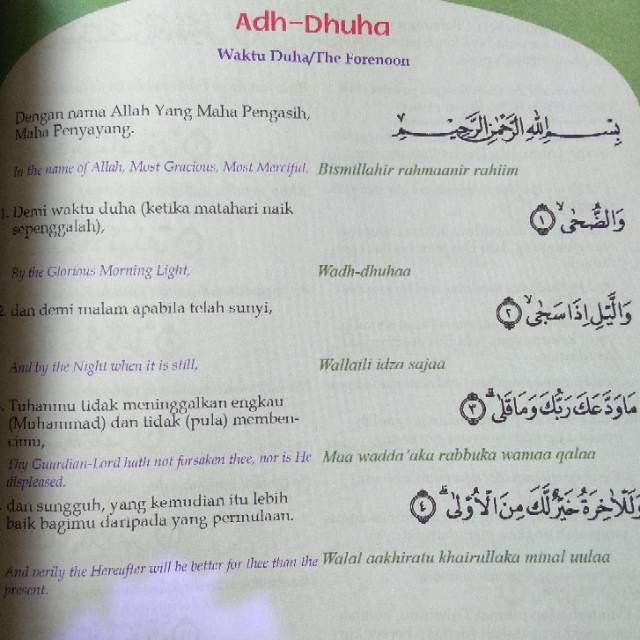 Adh-Dhuha
Waktu Duha/The Forenoon
Dengan nama Allah Yang Maha Pengasih,
Maha Penyayang.
بِسْمِ اللّٰهِ الرَّحْمٰنِ الرَّحِيْمِ
In the name of Allah, Most Gracious, Most Merciful.
Bismillahir rahmaanir rahiim
1. Demi waktu duha (ketika matahari naik
sepenggalah),
وَالضُّحٰىۙ ١
By the Glorious Morning Light,
Wadh-dhuhaa
2. dan demi malam apabila telah sunyi,
وَالَّيْلِ اِذَا سَجٰىۙ ٢
And by the Night when it is still,
Wallaili idza sajaa
Tuhanmu tidak meninggalkan engkau
(Muhammad) dan tidak (pula) memben-
cimu,
مَا وَدَّعَكَ رَبُّكَ وَمَا قَلٰىۗ ٣
Thy Guardian-Lord hath not forsaken thee, nor is He
displeased.
Maa wadda'aka rabbuka wamaa qalaa
dan sungguh, yang kemudian itu lebih
baik bagimu daripada yang permulaan.
وَلَلْاٰخِرَةُ خَيْرٌ لَّكَ مِنَ الْاُوْلٰىۗ ٤
And verily the Hereafter will be better for thee than the
present.
Walal aakhiratu khairullaka minal uulaa